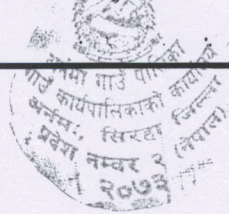 गाउँ पालिका
गाउँ कार्यपालिकाको कार्यालय
अर्नमा, सिरहा जिल्ला
प्रदेश नम्बर २ (नेपाल)
२०७३